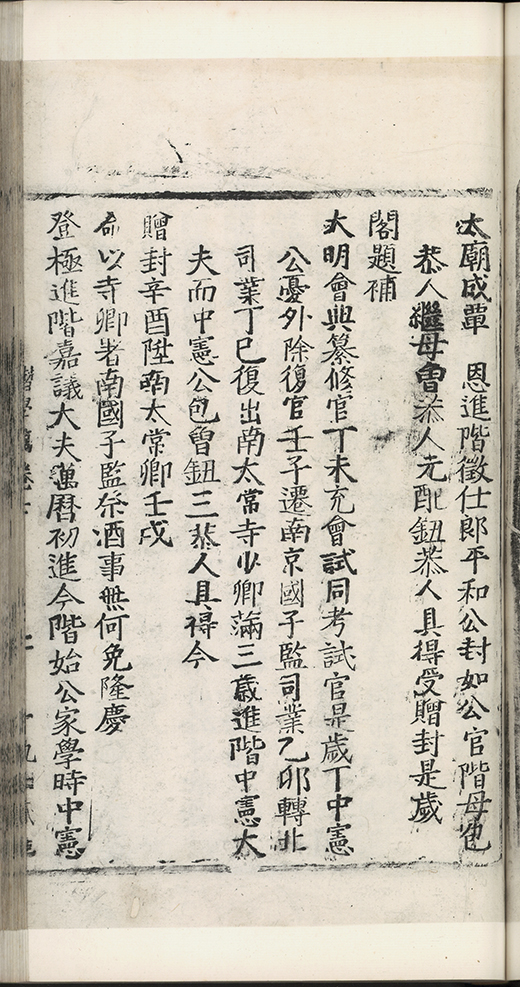 太廟成覃　恩進階徵仕郎平和公封如公官階母包
恭人繼母曾恭人元配鈕恭人具得受贈封是歲
閣題補
大明會典纂修官丁未充會試同考試官是歲丁中憲
公憂外除復官壬子遷南京國子監司業乙卯轉北
司業丁巳復出南太常寺少卿滿三歲進階中憲大
夫而中憲公包曾鈕三恭人具得今
贈封辛酉陞南太常卿壬戌
命以寺卿署南國子監祭酒事無何免隆慶
登極進階嘉議大夫萬曆初進今階始公家學時中憲